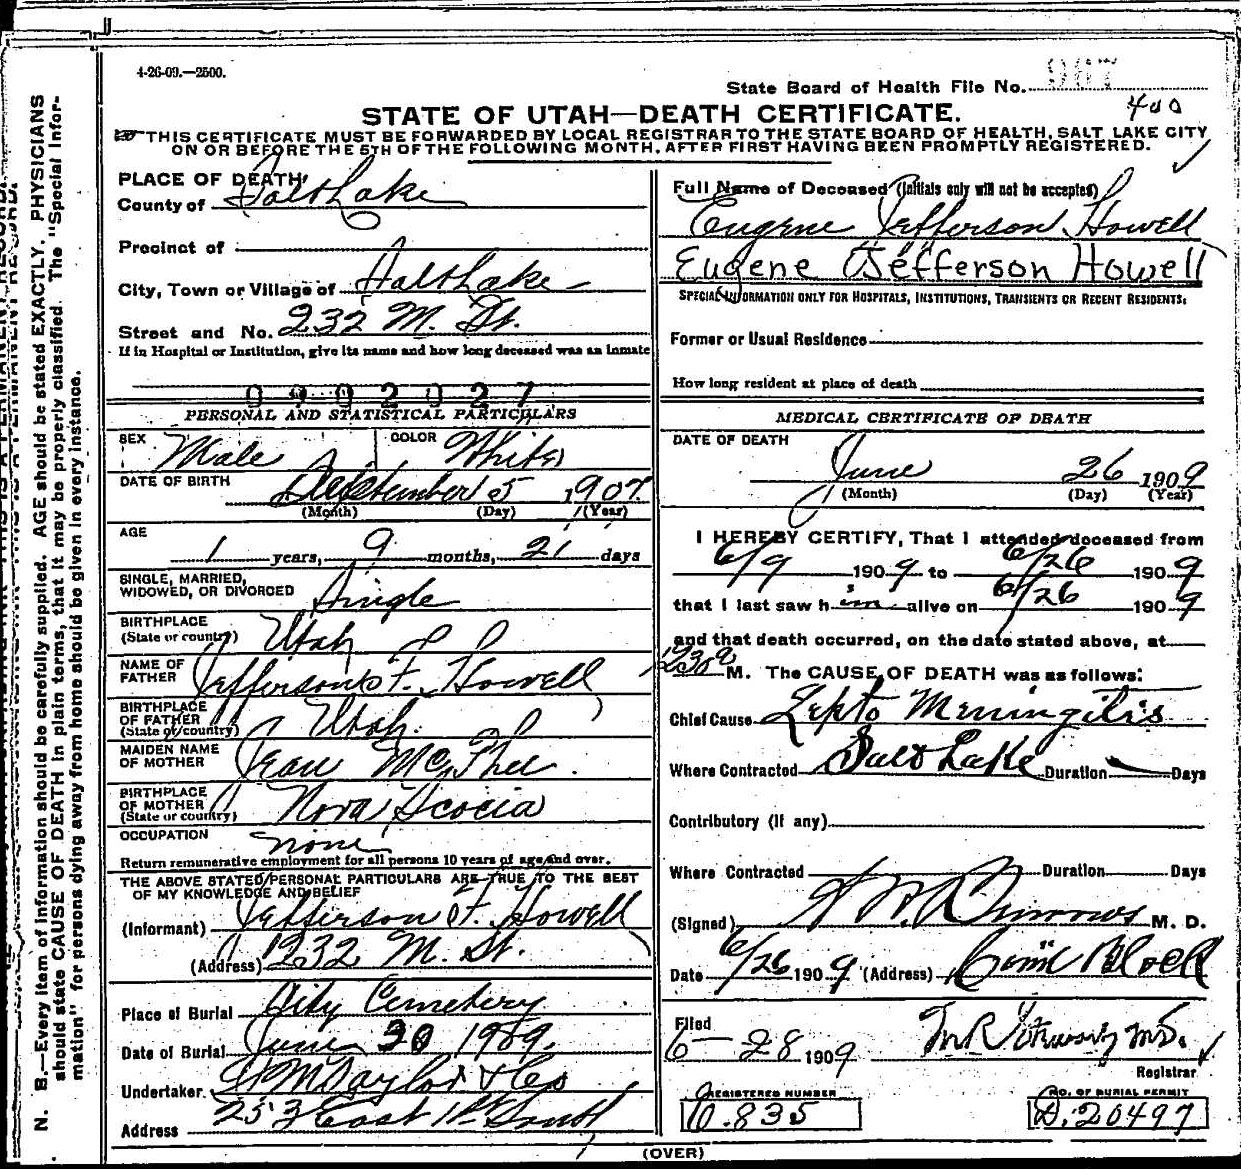 4-26-09.—2500.
State Board of Health File No. 967
STATE OF UTAH—DEATH CERTIFICATE.
400
THIS CERTIFICATE MUST BE FORWARDED BY LOCAL REGISTRAR TO THE STATE BOARD OF HEALTH, SALT LAKE CITY
ON OR BEFORE THE 5TH OF THE FOLLOWING MONTH, AFTER FIRST HAVING BEEN PROMPTLY REGISTERED.
PLACE OF DEATH
County of Salt Lake
Precinct of
City, Town or Village of Salt Lake
Street and No. 232 M. St.
If in Hospital or Institution, give its name and how long deceased was an inmate
0902027
PERSONAL AND STATISTICAL PARTICULARS
SEX Male COLOR White
DATE OF BIRTH September 5 1907
(Month) (Day) (Year)
AGE
1 years, 9 months, 21 days
SINGLE, MARRIED,
WIDOWED, OR DIVORCED Single
BIRTHPLACE
(State or country) Utah
NAME OF
FATHER Jefferson F. Howell
BIRTHPLACE
OF FATHER
(State or country) Utah.
MAIDEN NAME
OF MOTHER Jean McPhee.
BIRTHPLACE
OF MOTHER
(State or country) Nova Scocia
OCCUPATION none
Return remunerative employment for all persons 10 years of age and over.
THE ABOVE STATED PERSONAL PARTICULARS ARE TRUE TO THE BEST
OF MY KNOWLEDGE AND BELIEF
(Informant) Jefferson F. Howell
(Address) 232 M. St.
Place of Burial City Cemetery
Date of Burial June 30 1909.
Undertaker S. M. Taylor & Co
Address 253 East 1st South
Full Name of Deceased (Initials only will not be accepted)
Eugene Jefferson Howell
Eugene Jefferson Howell
SPECIAL INFORMATION ONLY FOR HOSPITALS, INSTITUTIONS, TRANSIENTS OR RECENT RESIDENTS:
Former or Usual Residence
How long resident at place of death
MEDICAL CERTIFICATE OF DEATH
DATE OF DEATH
June 26 1909
(Month) (Day) (Year)
I HEREBY CERTIFY, That I attended deceased from
6/9 1909 to 6/26 1909
that I last saw him alive on 6/26 1909
and that death occurred, on the date stated above, at
M. The CAUSE OF DEATH was as follows:
Chief Cause Lepto Meningitis
Where Contracted Salt Lake Duration Days
Contributory (If any)
Where Contracted Duration Days
(Signed) M. D.
Date 6/26 1909 (Address) Block
Filed
6—28 1909
Registrar
REGISTERED NUMBER
O.835
NO. OF BURIAL PERMIT
D.20497
(OVER)
N. B.—Every item of information should be carefully supplied. AGE should be stated EXACTLY. PHYSICIANS
should state CAUSE OF DEATH in plain terms, that it may be properly classified. The "Special Infor-
mation" for persons dying away from home should be given in every instance.